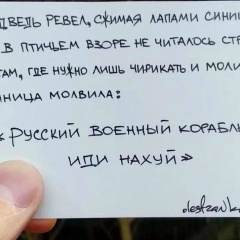 ДВЕДЬ РЕВЕЛ, СЖИМАЯ ЛАПАМИ СИНИ
В ПТИЧЬЕМ ВЗОРЕ НЕ ЧИТАЛОСЬ СТР
ТАМ, ГДЕ НУЖНО ЛИШЬ ЧИРИКАТЬ И МОЛИ
НИЦА МОЛВИЛА:
«РУССКИЙ ВОЕННЫЙ КОРАБЛ
ИДИ НАХУЙ»